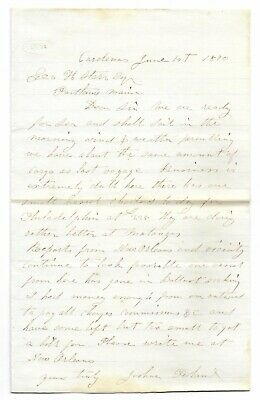 Cardenas June 10th 1870
Geo H Starr Esq
Portland Maine
Dear Sir We are ready
for sea and shall sail in the
morning wind & weather permitting
we have about the same amount of
cargo as last voyage. Business is
extremely dull here there has one
small vessel chartered to day for
Philadelphia at they are doing
rather better at Matanzas
Reports from New Orleans and vicinity
continue to look favorable one vessel
from here has gone in ballast making
I best money enough from on
to pay all charges commissions &C and
have some left but too small to get
a bill for Please write me at
New Orleans
yours truly Joshua